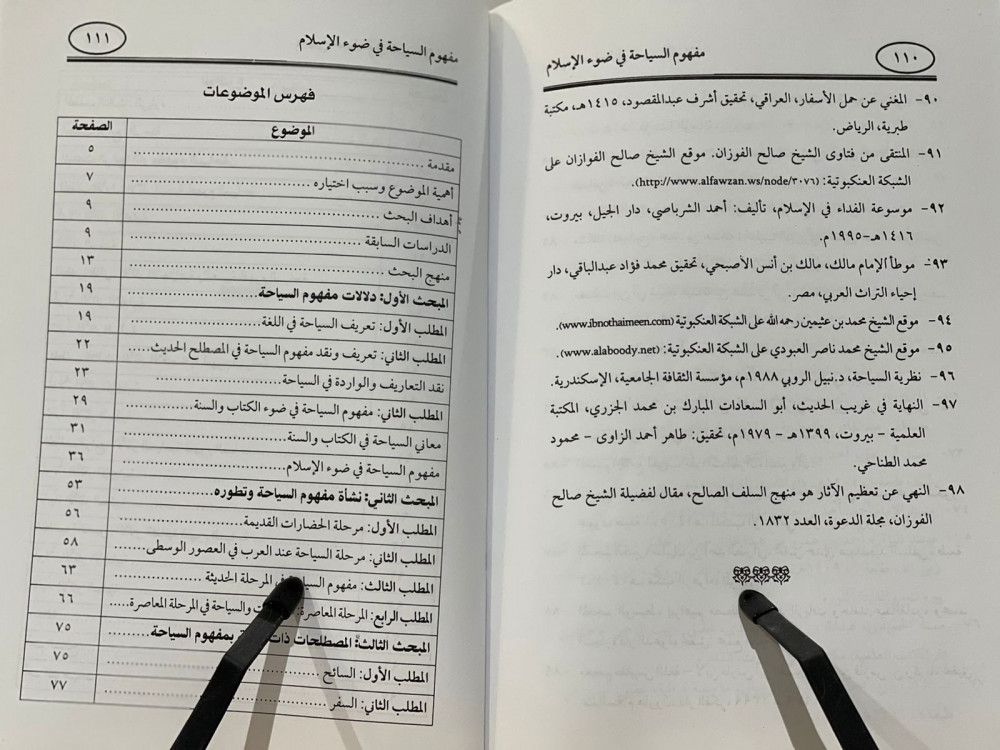 ١١٠
مفهوم السياحة في ضوء الإسلام
٩٠- المغني عن حمل الأسفار، العراقي، تحقيق أشرف عبدالمقصود، ١٤١٥هـ، مكتبة
طبرية، الرياض.
٩١- المنتقى من فتاوى الشيخ صالح الفوزان. موقع الشيخ صالح الفوازان على
الشبكة العنكبوتية: (http://www.alfawzan.ws/node/٣٠٧٦).
٩٢- موسوعة الفداء في الإسلام، تأليف: أحمد الشرباصي، دار الجيل، بيروت،
١٤١٦هـ-١٩٩٥م.
٩٣- موطأ الإمام مالك، مالك بن أنس الأصبحي، تحقيق محمد فؤاد عبدالباقي، دار
إحياء التراث العربي، مصر.
٩٤- موقع الشيخ محمد بن عثيمين رحمه الله على الشبكة العنكبوتية (www.ibnothaimeen.com).
٩٥- موقع الشيخ محمد ناصر العبودي على الشبكة العنكبوتية: (www.alaboody.net).
٩٦- نظرية السياحة، د.نبيل الروبي ١٩٨٨م، مؤسسة الثقافة الجامعية، الإسكندرية.
٩٧- النهاية في غريب الحديث، أبو السعادات المبارك بن محمد الجزري، المكتبة
العلمية - بيروت، ١٣٩٩هـ - ١٩٧٩م، تحقيق: طاهر أحمد الزاوى - محمود
محمد الطناحي.
٩٨- النهي عن تعظيم الآثار هو منهج السلف الصالح، مقال لفضيلة الشيخ صالح
الفوزان، مجلة الدعوة، العدد ١٨٣٢.
مفهوم السياحة في ضوء الإسلام
١١١
فهرس الموضوعات
الموضوع الصفحة
مقدمة ................ ٥
أهمية الموضوع وسبب اختياره ................ ٧
أهداف البحث ................ ٩
الدراسات السابقة ................ ٩
منهج البحث ................ ١٣
المبحث الأول: دلالات مفهوم السياحة ................ ١٩
المطلب الأول: تعريف السياحة في اللغة ................ ١٩
المطلب الثاني: تعريف ونقد مفهوم السياحة في المصطلح الحديث ..... ٢٢
نقد التعاريف والواردة في السياحة ................ ٢٣
المطلب الثاني: مفهوم السياحة في ضوء الكتاب والسنة ................ ٢٩
معاني السياحة في الكتاب والسنة ................ ٣١
مفهوم السياحة في ضوء الإسلام ................ ٣٦
المبحث الثاني: نشأة مفهوم السياحة وتطوره ................ ٥٣
المطلب الأول: مرحلة الحضارات القديمة ................ ٥٦
المطلب الثاني: مرحلة السياحة عند العرب في العصور الوسطى ....... ٥٨
المطلب الثالث: مفهوم السياحة في المرحلة الحديثة ................ ٦٣
المطلب الرابع: المرحلة المعاصرة: والسياحة في المرحلة المعاصرة ..... ٦٦
المبحث الثالث: المصطلحات ذات بمفهوم السياحة ......... ٧٥
المطلب الأول: السائح ................ ٧٥
المطلب الثاني: السفر ................ ٧٧